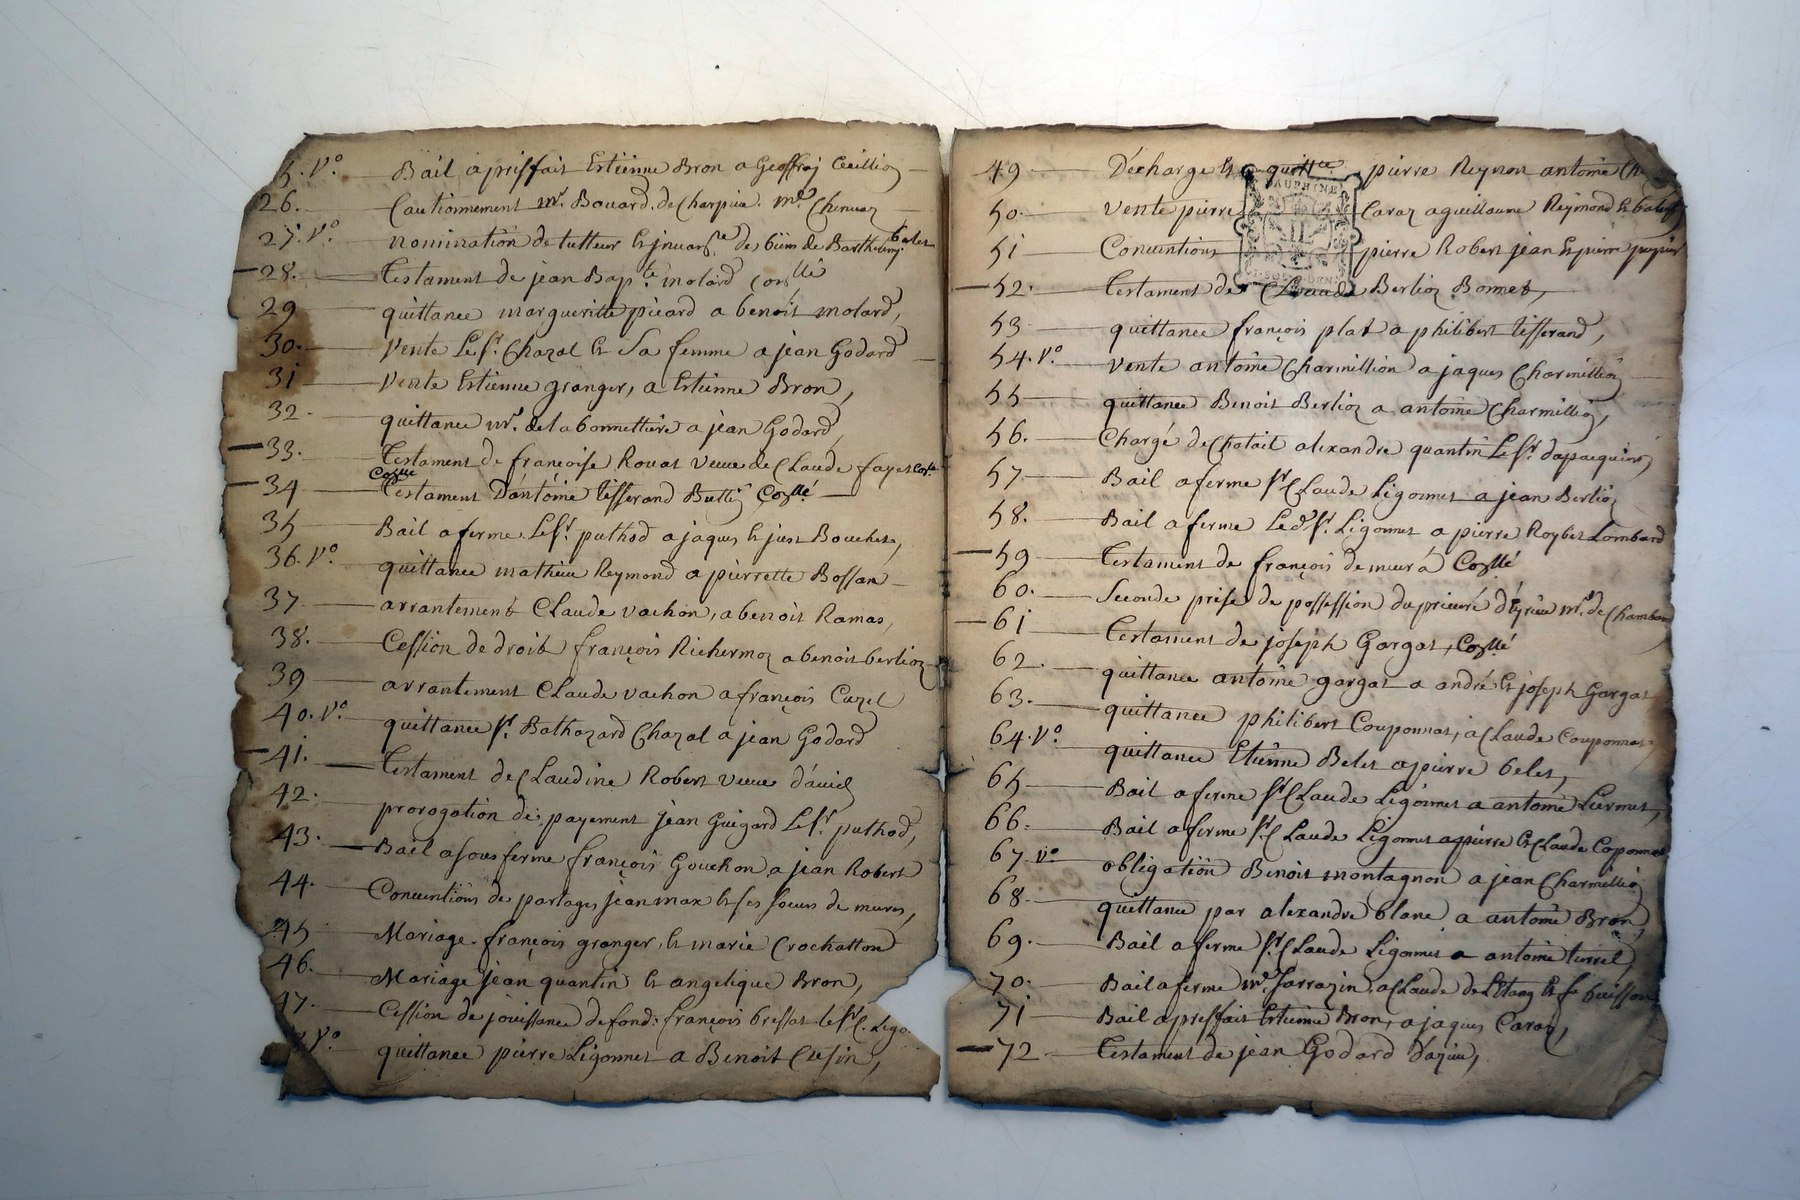 5. V° Bail a prisfait Estienne Bron a Geoffrey
26. Cautionnement mr. Bouard de Charpine. me Chenuaz
27. V° nomination de tutteur & jnuare de biens de Barthelemy beles
28. Testament de jean Bapte molard Collé
29 quittance margueritte picard a benoit molard,
30. Vente Le sr. Chazal & Sa femme a jean Godard
31 Vente Estienne granger, a Estienne Bron,
32 quittance mr. de la bonnettiere a jean Godard,
33. Testament de francoise Rouat veuve de Claude fayet Collé
34 Collé Testament D'antoine tisserand Collé
35 Bail a ferme Le sr. puthod a jaques & just Bouchet,
36. V° quittance mathieu Reymond a pierrette Bossan
37 arrantement Claude vachon, a benoit Ramas,
38. Cession de droit françois Richermoz a benoit berlioz
39 arrantement Claude vachon a françois Cazel
40. V° quittance sr. Balthazard Chazal a jean Godard
41. Testament de Claudine Robert veuve d'avid
42. prorogation de payement jean Guigard Le sr. puthod,
43. Bail a sous ferme françois Gouchon a jean Robert
44. Conventions de partages jean max & ses soeurs de mures,
45 Mariage. françois granger, & marie Crochatton
46. Mariage jean quantin & angelique Bron,
47. Cession de jouissance de fond: françois bressat le sr C. Ligo
V° quittance pierre Ligonnet a Benoit Cusin,
49 Décharge & quittce pierre Reynon antoine
50. Vente pierre Caraz a guillaume Reymond &
51 Conventions pierre Robert jean & pierre
52. Testament de Claude Berlioz Bomet,
53 quittance françois plat a philibert tisserand,
54. V° Vente antoine Charmillion a jaques Charmillion
55 quittance Benoit Berlioz a antoine Charmillion,
56. Chargé de chatait alexandre quantin Le sr.
57 Bail a ferme sr Claude Ligonnet a jean Berlioz
58. Bail a ferme Le d. sr. Ligonnet a pierre Roybet Lombard
59 Testament de françois demeurá Collé
60. Seconde prise de possession du prieuré mr de Chambaran
61 Testament de joseph Gargat, Collé
62. quittance antoine gargat a andré & joseph Gargat
63. quittance philibert Couponnat, a Claude Couponnat,
64. V° quittance Etienne Belet a pierre belet,
65 Bail a ferme sr Claude Ligonnet a antoine Liermet,
66. Bail a ferme sr. Claude Ligonnet a pierre & Claude Coponnat
67 V° obligation Benoit montagnon a jean Charmillion
68 quittance par alexandre blanc a antoine Bron,
69. Bail a ferme sr Claude Ligonnet a antoine turrel,
70. Bail a ferme mr. Sarrazin a Claude de Létang & f. buisson
71 Bail a prisfait Estienne Bron, a jaques Caraz,
72 Testament de jean Godard